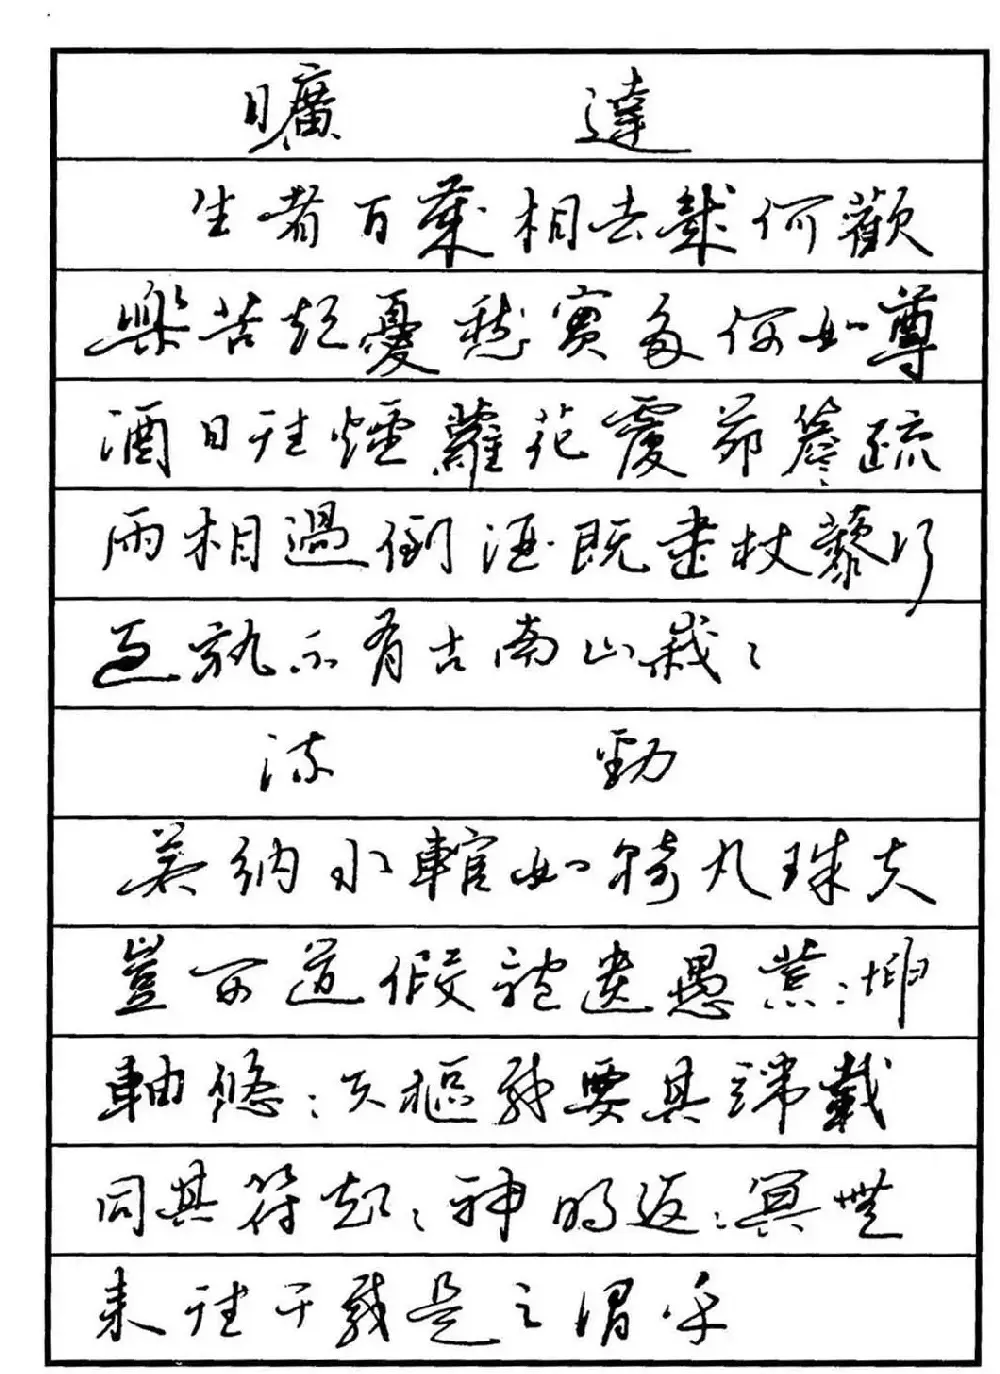 曠達
生者百歲相去幾何歡
樂苦短憂愁實多何如尊
酒日往煙蘿花覆茆簷疏
雨相過倒酒既盡杖藜行
過孰不有古南山峩〻
流動
若納水輨如轉丸珠夫
豈可道假體遺愚荒〻坤
軸悠〻天樞載要其端載
同其符超〻神明返〻冥無
來往千載是之謂乎